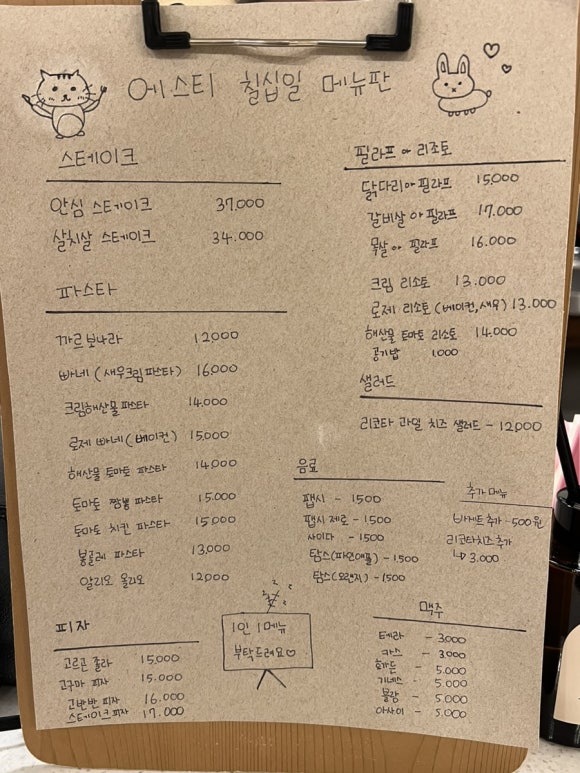 에스티 칠십일 메뉴판
스테이크
안심 스테이크 37,000
살치살 스테이크 34.000
파스타
까르보나라 12,000
빠네 (새우크림파스타) 16,000
크림해산물파스타 14,000
로제 빠네 (베이컨) 15,000
해산물 토마토 파스타 14,000
토마토 짬뽕 파스타 15.000
토마토 치킨 파스타 15,000
봉골레 파스타 13,000
알리오 올리오 12,000
피자
고르곤 졸라 15,000
고구마 피자 15.000
고반반 피자 16.000
스테이크피자 17.000
필라프 or 리조또
닭다리 or 필라프 15,000
갈비살 or 필라프 17.000
목살 or 필라프 16.000
크림 리소토 13.000
로제 리소토 (베이컨,새우) 13.000
해산물 토마토 리소토 14.000
공기밥 1000
샐러드
리코타 과일 치즈 샐러드 - 12,000
음료
팹시 - 1500
팹시 제로 - 1500
사이다 - 1500
탐스(파인애플) - 1500
탐스(오랜지) - 1500
추가메뉴
바게트추가 - 500원
리코타치즈추가
↳ 3.000
1인 1메뉴
부탁드려요♡
맥주
테라 - 3000
카스 - 3000
호가든 - 5.000
기네스 - 5.000
블랑 - 5.000
아사이 - 5.000